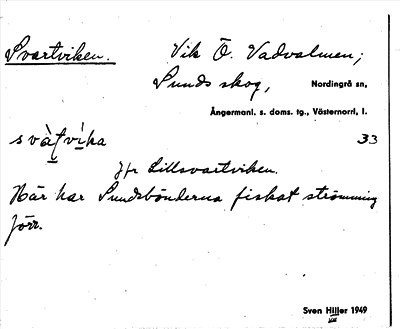 Svartviken. Vik Ö. Vadvalmen;
Sunds skog, Nordingrå sn,
Ångermanl. s. doms. tg., Västernorrl, l.
svàṭvìka 33
Jfr Lillsvartviken.
Här har Sundsbönderna fiskat strömming
förr.
Sven Hiller 1949